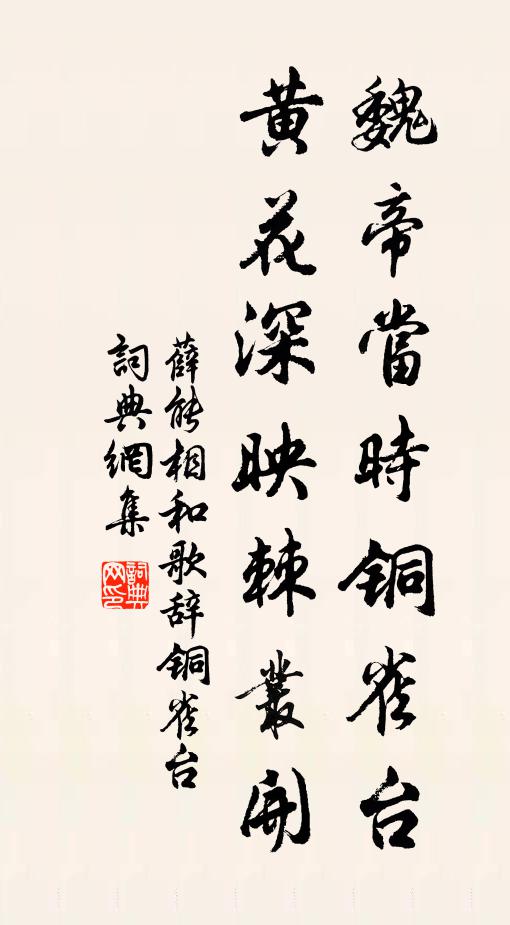 魏帝當時铜雀台
黄花深映棘叢開
薛能相和歌辞铜雀台
詞典網集
詞典网印